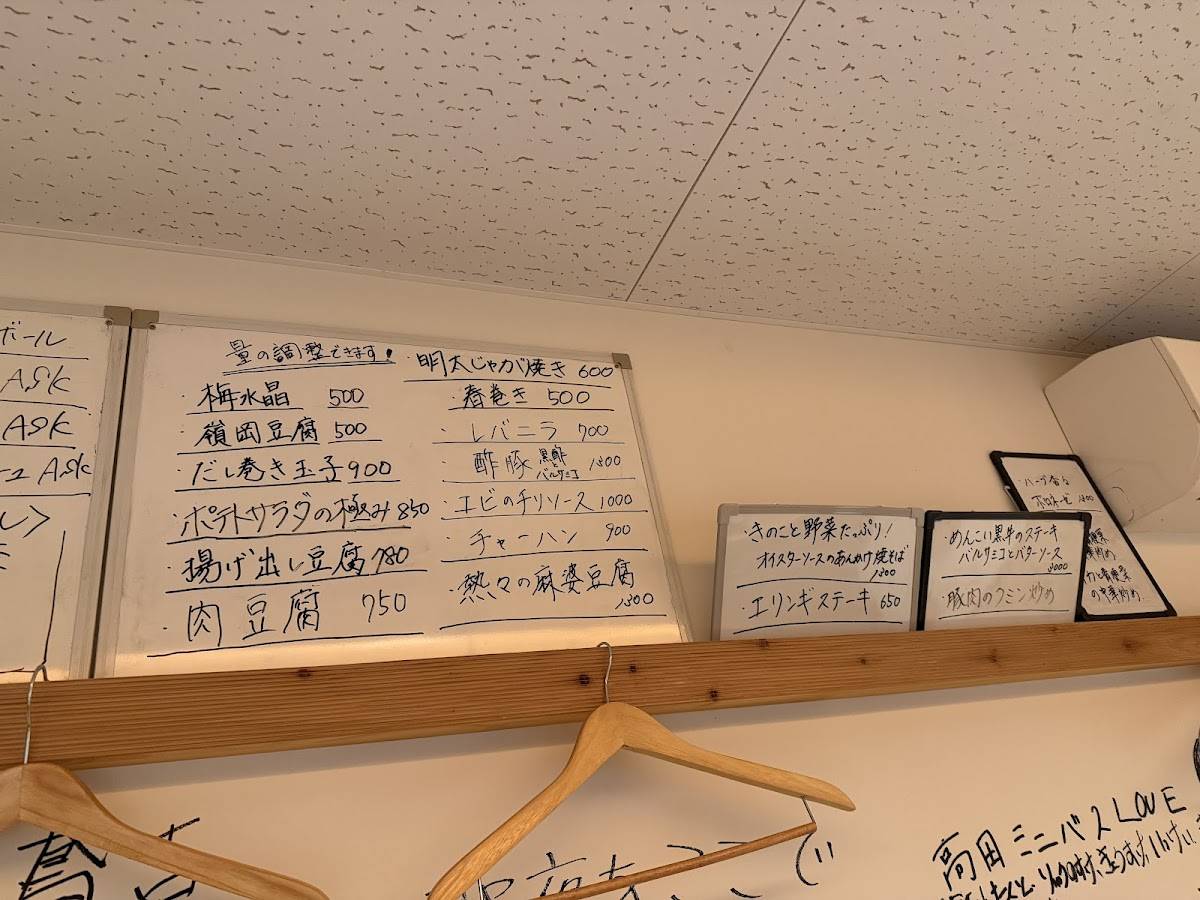 ボール
ASK
ASK
ュ ASK
量の調整できます!
・梅水晶 500
・嶺岡豆腐 500
・だし巻き玉子 900
・ポテトサラダの極み 850
・揚げ出し豆腐 780
・肉豆腐 750
・明太じゃが焼き 600
・春巻き 500
・レバニラ 700
・酢豚 黒酢とバルサミコ 1300
・エビのチリソース 1000
・チャーハン 900
・熱々の麻婆豆腐
1300
・きのこと野菜たっぷり!
オイスターソースのあんかけ焼そば
1300
・エリンギステーキ 650
・めんこい黒牛のステーキ
バルサミコとバターソース
3000
・豚肉のクミン炒め
・ハーブ香る
ボロネーゼ 1300
の中華炒め
高田ミニバス LOVE
ここで